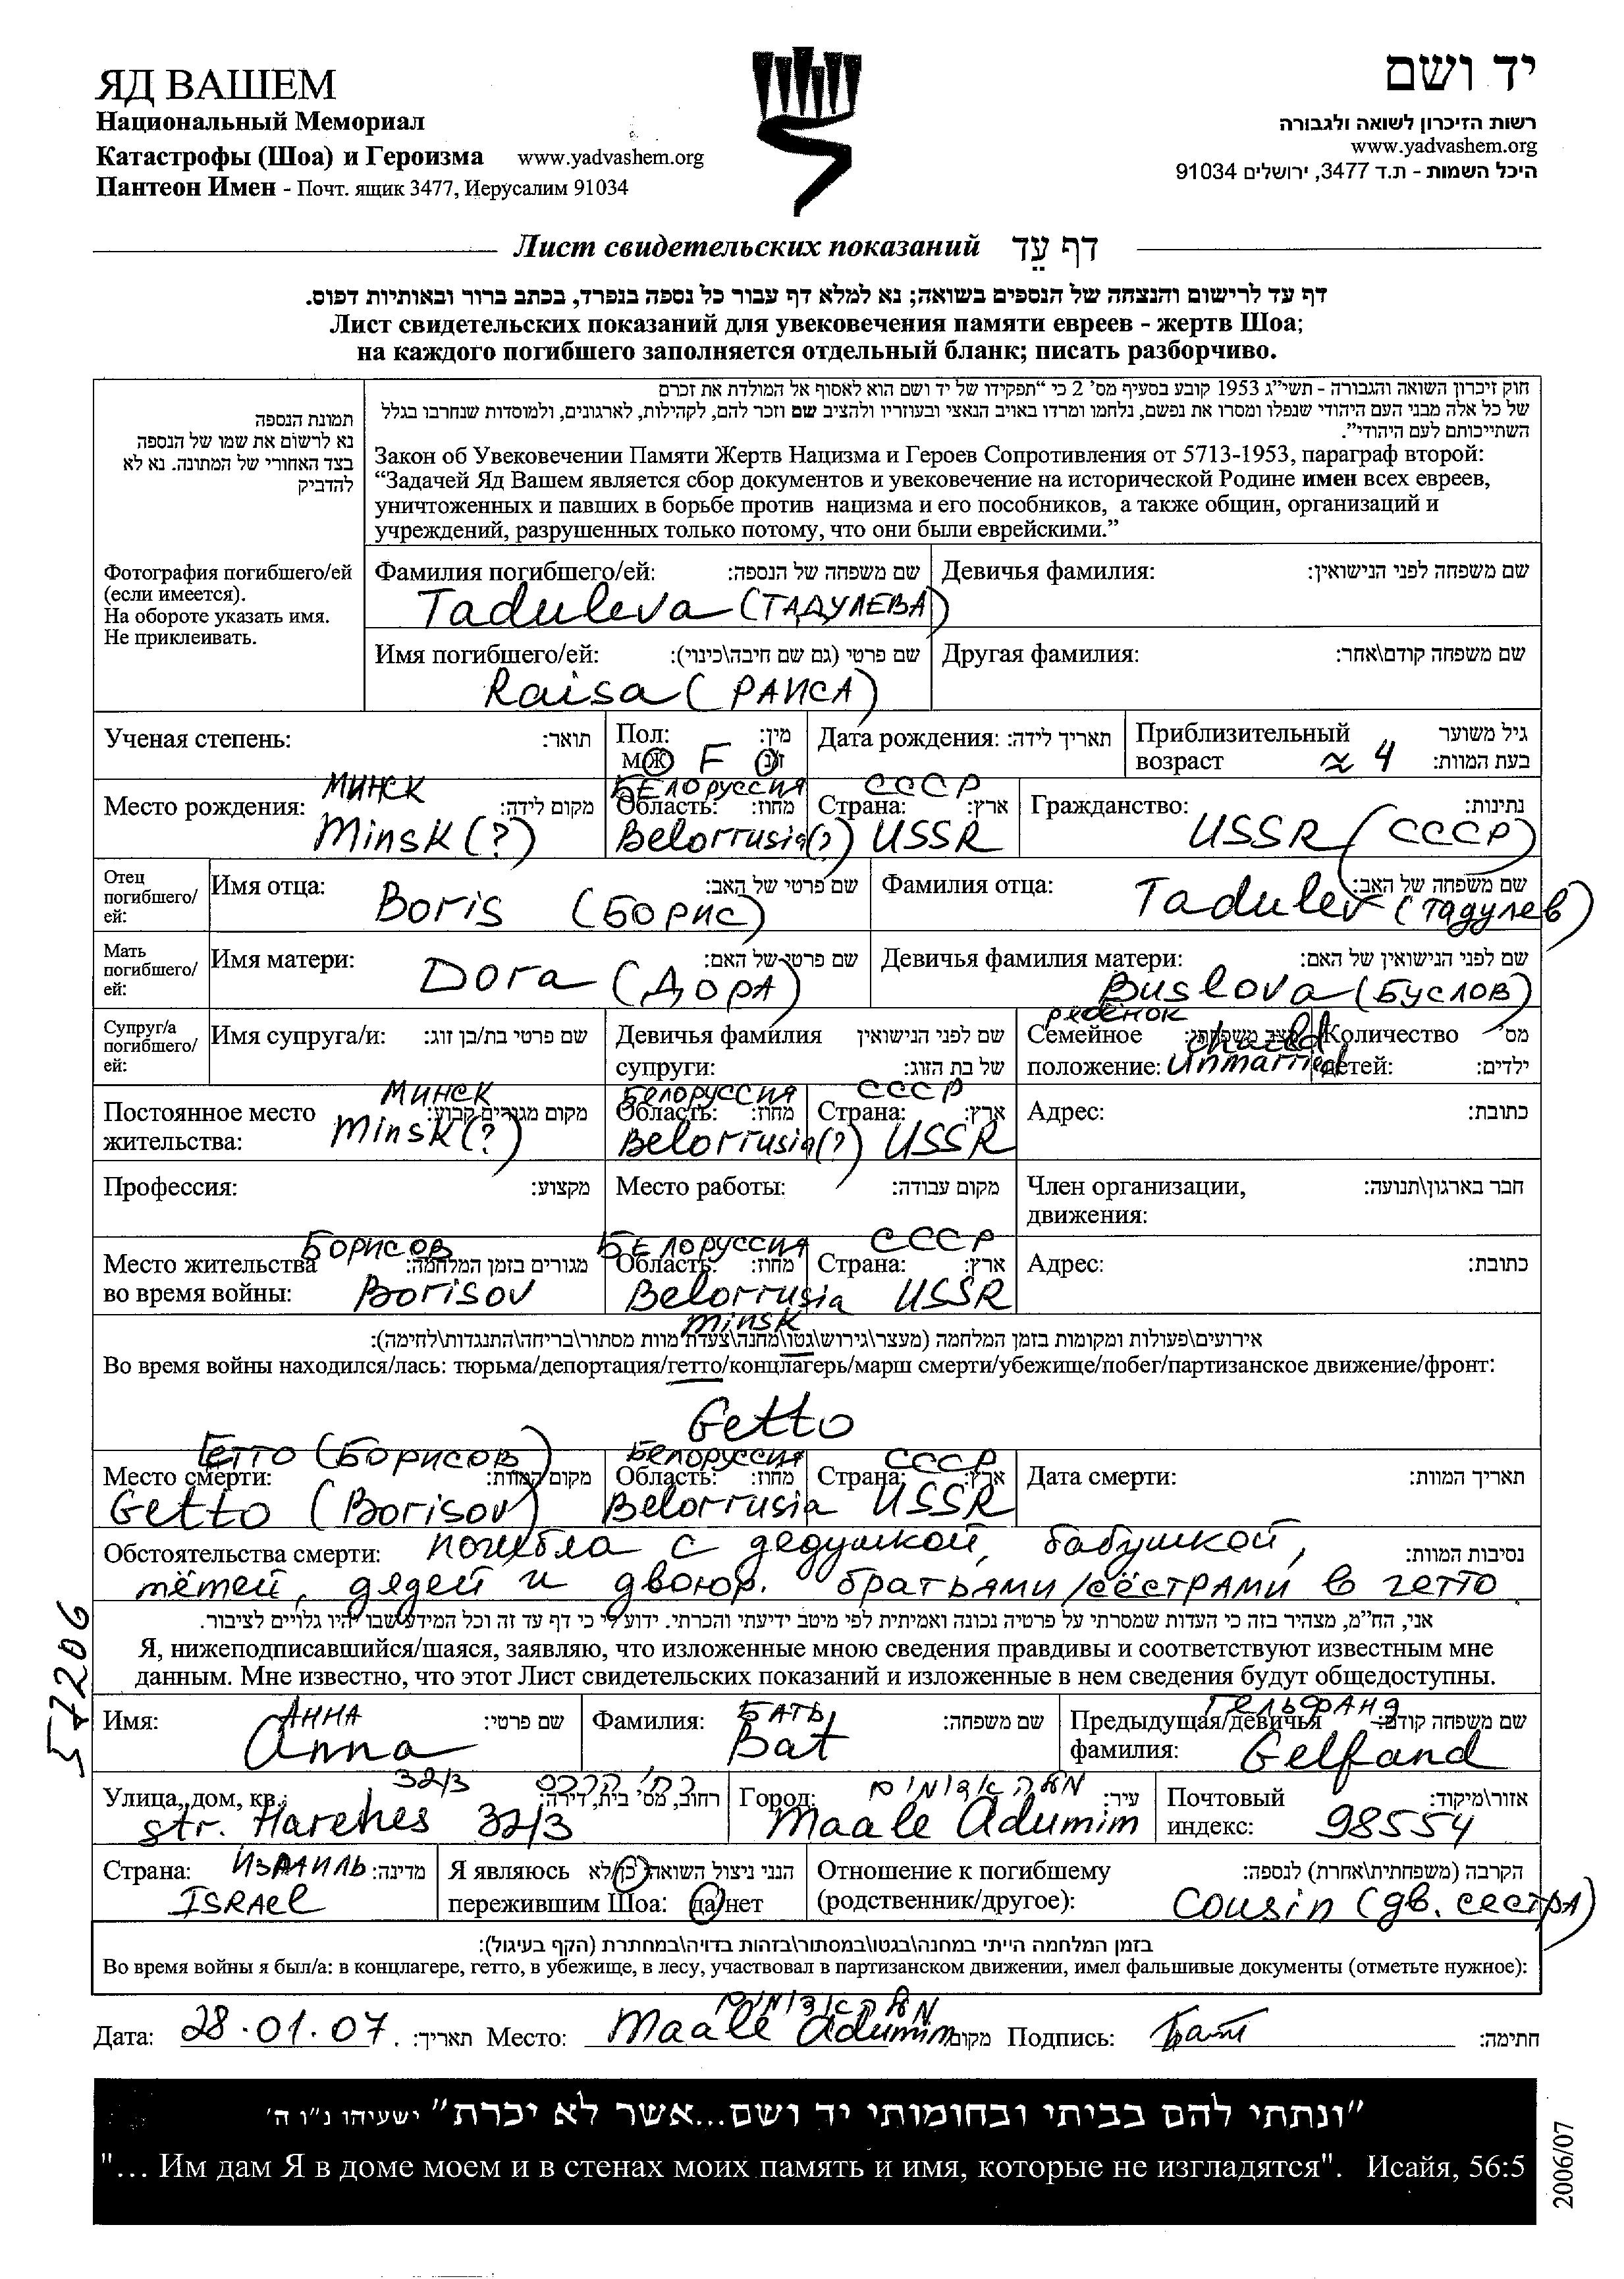 ЯД ВАШЕМ
Национальный Мемориал
Катастрофы (Шоа) и Героизма www.yadvashem.org
Пантеон Имен - Почт. ящик 3477, Иерусалим 91034
יד ושם
רשות הזיכרון לשואה ולגבורה
www.yadvashem.org
היכל השמות - ת.ד 3477, ירושלים 91034
Лист свидетельских показаний דף עֵד
דף עד לרישום והנצחה של הנספים בשואה; נא למלא דף עבור כל נספה בנפרד, בכתב ברור ובאותיות דפוס.
Лист свидетельских показаний для увековечения памяти евреев - жертв Шоа;
на каждого погибшего заполняется отдельный бланк; писать разборчиво.
תמונת הנספה
נא לרשום את שמו של הנספה
בצד האחורי של המתונה. נא לא
להדביק
Фотография погибшего/ей
(если имеется).
На обороте указать имя.
Не приклеивать.
חוק זיכרון השואה והגבורה - תשי"ג 1953 קובע בסעיף מס' 2 כי "תפקידו של יד ושם הוא לאסוף אל המולדת את זכרם
של כל אלה מבני העם היהודי שנפלו ומסרו את נפשם, נלחמו ומרדו באויב הנאצי ובעוזריו ולהציב שם וזכר להם, לקהילות, לארגונים, ולמוסדות שנחרבו בגלל
השתייכותם לעם היהודי".
Закон об Увековечении Памяти Жертв Нацизма и Героев Сопротивления от 5713-1953, параграф второй:
“Задачей Яд Вашем является сбор документов и увековечение на исторической Родине имен всех евреев,
уничтоженных и павших в борьбе против нацизма и его пособников, а также общин, организаций и
учреждений, разрушенных только потому, что они были еврейскими.”
Фамилия погибшего/ей: שם משפחה של הנספה: Девичья фамилия: שם משפחה לפני הנישואין:
Taduleva (ТАДУЛЕВА)
Имя погибшего/ей: שם פרטי (גם שם חיבה\כינוי): Другая фамилия: שם משפחה קודם\אחר:
Raisa (РАИСА)
Ученая степень: תואר: Пол: מין: Дата рождения: תאריך לידה: Приблизительный גיל משוער
М/Ж F ז/נ возраст ≈ 4 בעת המוות:
МИНСК БЕЛОРУССИЯ СССР
Место рождения: מקום לידה: Область: מחוז: Страна: ארץ: Гражданство: נתינות:
Minsk (?) Belorrusia (?) USSR USSR (СССР)
Отец
погибшего/
ей:
Имя отца: שם פרטי של האב: Фамилия отца: שם משפחה של האב:
Boris (БОРИС) Tadulev (ТАДУЛЕВ)
Мать
погибшего/
ей:
Имя матери: שם פרטי של האם: Девичья фамилия матери: שם לפני הנישואין של האם:
Dora (ДОРА) Buslova (БУСЛОВ)
Супруг/а
погибшего/
ей:
Имя супруга/и: שם פרטי בת/בן זוג: Девичья фамилия שם לפני הנישואין
супруги: של בת הזוג:
ребёнок
Семейное מצב משפחתי: chaild Количество מס'
положение: unmarried детей: ילדים:
МИНСК БЕЛОРУССИЯ СССР
Постоянное место מקום מגורים קבוע: Область: מחוז: Страна: ארץ: Адрес: כתובת:
жительства: Minsk (?) Belorrusia (?) USSR
Профессия: מקצוע: Место работы: מקום עבודה: Член организации, חבר בארגון\תנועה:
движения:
БОРИСОВ БЕЛОРУССИЯ СССР
Место жительства מגורים בזמן המלחמה: Область: מחוז: Страна: ארץ: Адрес: כתובת:
во время войны: Borisov Belorrusia USSR
Minsk
אירועים\פעולות ומקומות בזמן המלחמה (מעצר\גירוש\גטו\מחנה\צעדת מוות מסתור\בריחה\התנגדות\לחימה):
Во время войны находился/лась: тюрьма/депортация/гетто/концлагерь/марш смерти/убежище/побег/партизанское движение/фронт:
Getto
Гетто (БОРИСОВ) БЕЛОРУССИЯ СССР
Место смерти: מקום המוות: Область: מחוז: Страна: ארץ: Дата смерти: תאריך המוות:
Getto (Borisov) Belorrusia USSR
Обстоятельства смерти: погибла с дедушкой, бабушкой, נסיבות המוות:
тётей, дядей и двоюр. братьями/сёстрами в гетто
אני, הח"מ, מצהיר בזה כי העדות שמסרתי על פרטיה נכונה ואמיתית לפי מיטב ידיעתי והכרתי. ידוע לי כי דף עד זה וכל המידע שבו יהיו גלויים לציבור.
Я, нижеподписавшийся/шаяся, заявляю, что изложенные мною сведения правдивы и соответствуют известным мне
данным. Мне известно, что этот Лист свидетельских показаний и изложенные в нем сведения будут общедоступны.
57206
АННА БАТЬ ГЕЛЬФАНД
Имя: שם פרטי: Фамилия: שם משפחה: Предыдущая/девичья שם משפחה קודם:
Anna Bat фамилия: Gelfand
32/3 רח' הרכס מעלה אדומים
Улица, дом, кв.: רחוב, מס' בית, דירה: Город: עיר: Почтовый אזור\מיקוד:
str. Harehes 32/3 Maale Adumim индекс: 98554
Страна: ИЗРАИЛЬ מדינה: Я являюсь הנני ניצול השואה כן/לא Отношение к погибшему הקרבה (משפחתית\אחרת) לנספה:
ISRAEL пережившим Шоа: да/нет (родственник/другое): Cousin (дв. сестра)
בזמן המלחמה הייתי במחנה\בגטו\במסתור\בזהות בדויה\במחתרת (הקף בעיגול):
Во время войны я был/а: в концлагере, гетто, в убежище, в лесу, участвовал в партизанском движении, имел фальшивые документы (отметьте нужное):
מעלה אדומים
Дата: 28.01.07. תאריך: Место: Maale Adumim מקום Подпись: Бат חתימה:
"ונתתי להם בביתי ובחומותי יד ושם...אשר לא יכרת" ישעיהו נ"ו ה'
"... Им дам Я в доме моем и в стенах моих память и имя, которые не изгладятся". Исайя, 56:5
2006/07